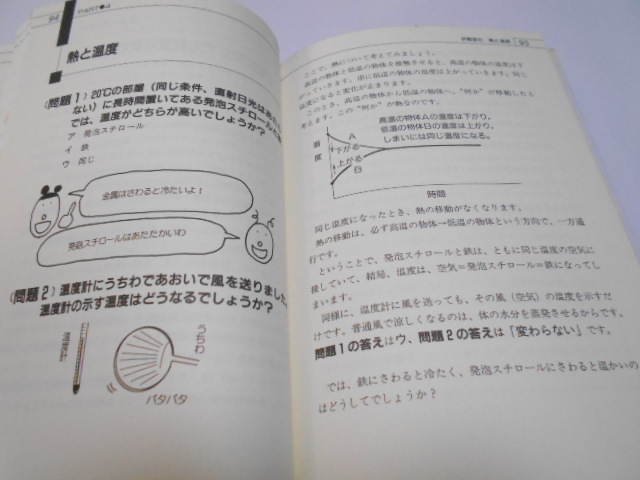 84 PART●4
熱と温度
(問題1) 20℃の部屋 (同じ条件、直射日光はあたら
ない) に長時間置いてある発泡スチロールと鉄
では、温度がどちらが高いでしょうか?
ア 発泡スチロール
イ 鉄
ウ 同じ
金属はさわると冷たいよ!
発砲スチロールはあたたかいわ
(問題2) 温度計にうちわであおいで風を送りました。
温度計の示す温度はどうなるでしょうか?
温度計
うちわ
パタパタ
熱と温度 95
ここで、熱について考えてみましょう。
高温の物体と低温の物体を接触させると、高温の物体の温度は下
がっていきます。逆に低温の物体の温度は上がっていきます。同じ
温度になると変化が止まります。
このとき、高温の物体から低温の物体へ、"何か" が移動したと
考えます。この "何か" が熱なのです。
高温の物体Aの温度は下がり、
低温の物体Bの温度は上がり、
しまいには同じ温度になる。
温度
A
下がる
上がる
B
時間
同じ温度になったとき、熱の移動がなくなります。
熱の移動は、必ず高温の物体→低温の物体という方向で、一方通
行です。
ということで、発泡スチロールと鉄は、ともに同じ温度の空気に
接していて、結局、温度は、空気=発泡スチロール=鉄になってし
まいます。
同様に、温度計に風を送っても、その風 (空気) の温度を示すだ
けです。普通風で涼しくなるのは、体の水分を蒸発させるからです。
問題1の答えはウ、問題2の答えは「変わらない」です。
では、鉄にさわると冷たく、発泡スチロールにさわると温かいの
はどうしてでしょうか?